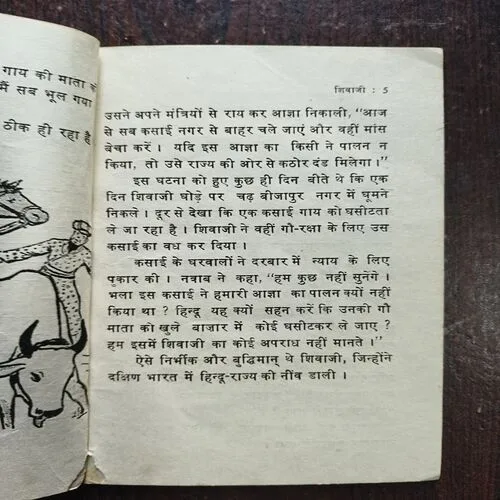 गाय की माता क
मैं सब भूल गया
ठीक ही रहा है
शिवाजी : 5
उसने अपने मंत्रियों से राय कर आज्ञा निकाली, “आज
से सब कसाई नगर से बाहर चले जाएं और वहीं मांस
बेचा करें । यदि इस आज्ञा का किसी ने पालन न
किया, तो उसे राज्य की ओर से कठोर दंड मिलेगा ।”
इस घटना को हुए कुछ ही दिन बीते थे कि एक
दिन शिवाजी घोड़े पर चढ़ बीजापुर नगर में घूमने
निकले । दूर से देखा कि एक कसाई गाय को घसीटता
ले जा रहा है । शिवाजी ने वहीं गौ-रक्षा के लिए उस
कसाई का वध कर दिया ।
कसाई के घरवालों ने दरबार में न्याय के लिए
पुकार की । नवाब ने कहा, “हम कुछ नहीं सुनेंगे ।
भला इस कसाई ने हमारी आज्ञा का पालन क्यों नहीं
किया था ? हिन्दू यह क्यों सहन करें कि उनकी गौ
माता को खुले बाजार में कोई घसीटकर ले जाए ?
हम इसमें शिवाजी का कोई अपराध नहीं मानते ।”
ऐसे निर्भीक और बुद्धिमान् थे शिवाजी, जिन्होंने
दक्षिण भारत में हिन्दू-राज्य की नींव डाली ।